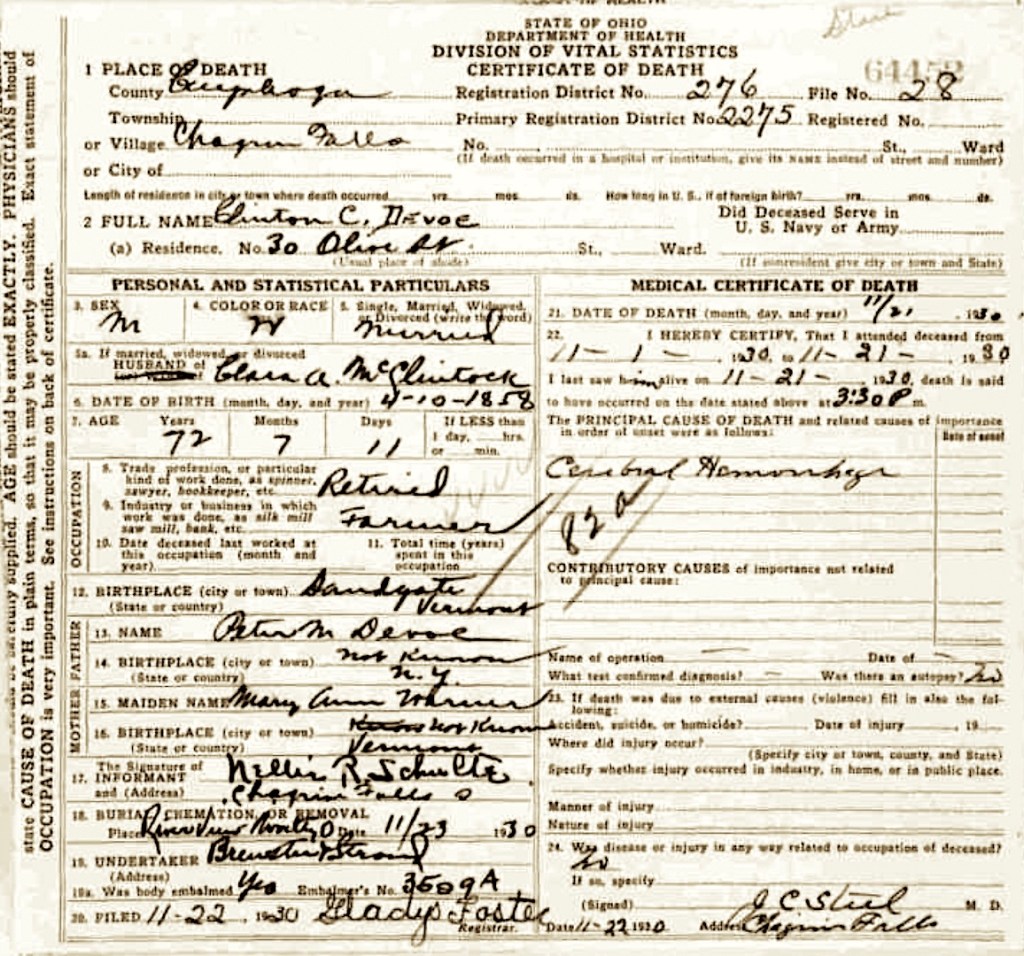 STATE OF OHIO
DEPARTMENT OF HEALTH
DIVISION OF VITAL STATISTICS
CERTIFICATE OF DEATH
64452
1 PLACE OF DEATH
County Cuyahoga Registration District No. 276 File No. 28
Township Primary Registration District No. 2275 Registered No.
or Village Chagrin Falls No. St., Ward
(If death occurred in a hospital or institution, give its NAME instead of street and number)
or City of
Length of residence in city or town where death occurred yrs. mos. ds. How long in U. S., if of foreign birth? yrs. mos. ds.
2 FULL NAME Clinton C. Devoe Did Deceased Serve in
U. S. Navy or Army
(a) Residence. No. 30 Olive St. St., Ward.
(Usual place of abode) (If nonresident give city or town and State)
PERSONAL AND STATISTICAL PARTICULARS
3. SEX 4. COLOR OR RACE 5. Single, Married, Widowed, or Divorced (write the word)
M W Married
5a. If married, widowed or divorced
HUSBAND of Clara A. McClintock
6. DATE OF BIRTH (month, day, and year) 4-10-1858
7. AGE Years Months Days If LESS than
72 7 11 1 day, hrs.
or min.
OCCUPATION
8. Trade profession, or particular
kind of work done, as spinner,
sawyer, bookkeeper, etc. Retired
9. Industry or business in which
work was done, as silk mill
saw mill, bank, etc. Farmer
10. Date deceased last worked at
this occupation (month and
year)
11. Total time (years)
spent in this
occupation
12. BIRTHPLACE (city or town) Sandgate
(State or country) Vermont
FATHER
13. NAME Peter M Devoe
14. BIRTHPLACE (city or town) Not Known
(State or country) N.Y.
MOTHER
15. MAIDEN NAME Mary Ann Warner
16. BIRTHPLACE (city or town) Not Known
(State or country) Vermont
The Signature of
17. INFORMANT Nellie R. Schulte
and (Address) Chagrin Falls O
18. BURIAL, CREMATION, OR REMOVAL
Place Date 11/23 1930
19. UNDERTAKER Brewster & Stroud
(Address)
19a. Was body embalmed Yes Embalmer's No. 3559A
20. FILED 11-22 1930 Gladys Foster
Registrar.
MEDICAL CERTIFICATE OF DEATH
21. DATE OF DEATH (month, day, and year) 11/21 1930
22. I HEREBY CERTIFY, That I attended deceased from
11-1- 1930, to 11-21- 1930
I last saw him alive on 11-21- 1930, death is said
to have occurred on the date stated above at 3:30 P m.
The PRINCIPAL CAUSE OF DEATH and related causes of importance
in order of onset were as follows:
Date of onset
Cerebral Hemorrhage
82a
CONTRIBUTORY CAUSES of importance not related
to principal cause:
Name of operation — Date of —
What test confirmed diagnosis? — Was there an autopsy? No
23. If death was due to external causes (violence) fill in also the following:
Accident, suicide, or homicide? Date of injury 19
Where did injury occur?
(Specify city or town, county, and State)
Specify whether injury occurred in industry, in home, or in public place.
Manner of injury
Nature of injury
24. Was disease or injury in any way related to occupation of deceased?
No
If so, specify
(Signed) J. C. Steel M. D.
Date 11-22 1930 Address Chagrin Falls
state CAUSE OF DEATH in plain terms, so that it may be properly classified. Exact statement of
OCCUPATION is very important. See instructions on back of certificate.
supplied. AGE should be stated EXACTLY. PHYSICIANS should